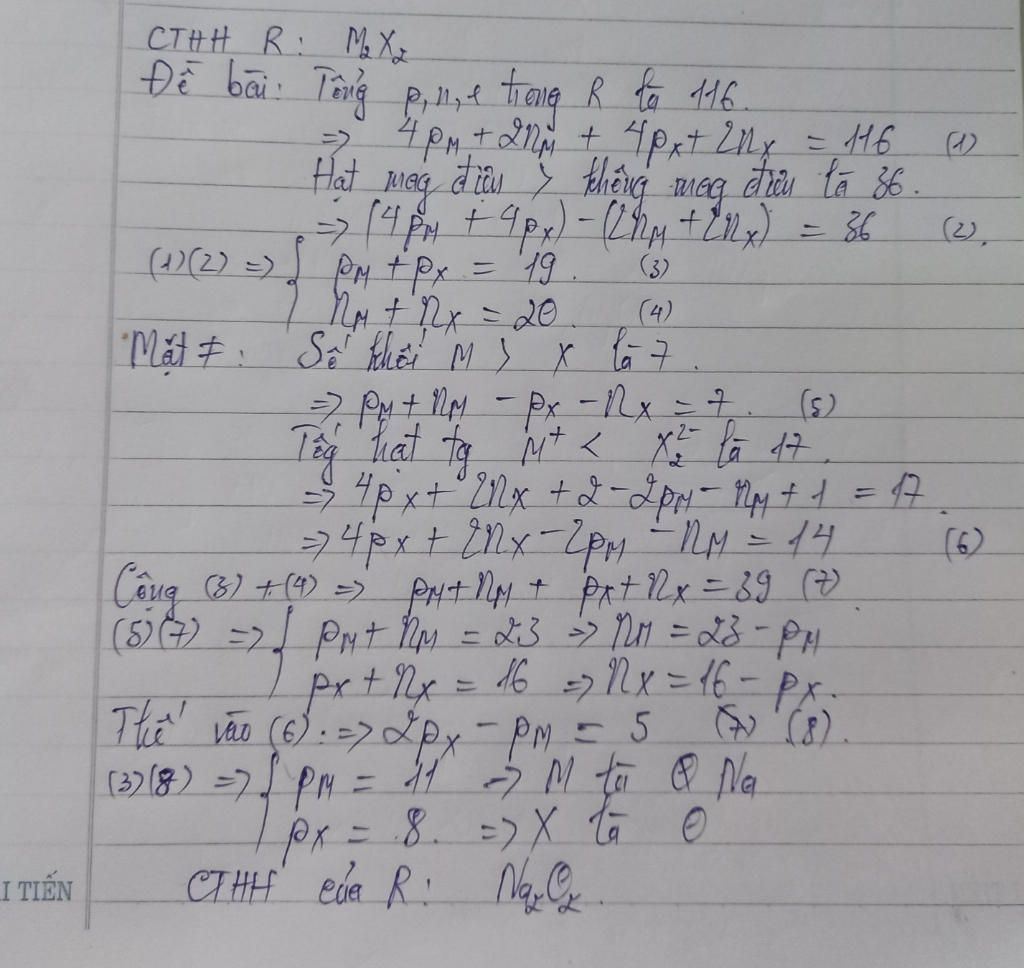 CTHH R: M₂X₂
Đề bài: Tổng p,n,e trong R là 116.
=> 4pM + 2nM + 4pX + 2nX = 116 (1)
Hạt mag điện > không mag điện là 36.
=> (4pM + 4pX) - (2nM + 2nX) = 36 (2).
(1)(2) => { pM + pX = 19. (3)
nM + nX = 20. (4)
Mặt ≠: Số khối M > X là 7.
=> pM + nM - pX - nX = 7. (5)
Tổg hạt tg M⁺ < X₂²⁻ là 17.
=> 4pX + 2nX + 2 - 2pM - nM + 1 = 17.
=> 4pX + 2nX - 2pM - nM = 14 (6)
Cộng (3) + (4) => pM + nM + pX + nX = 39 (7)
(5)(7) => { pM + nM = 23 => nM = 23 - pM
pX + nX = 16 => nX = 16 - pX.
Thế vào (6): => 2pX - pM = 5 (7) (8).
(3)(8) => { pM = 11 => M là Na
pX = 8. => X là O
CTHH của R: Na₂O₂.
I TIẾN